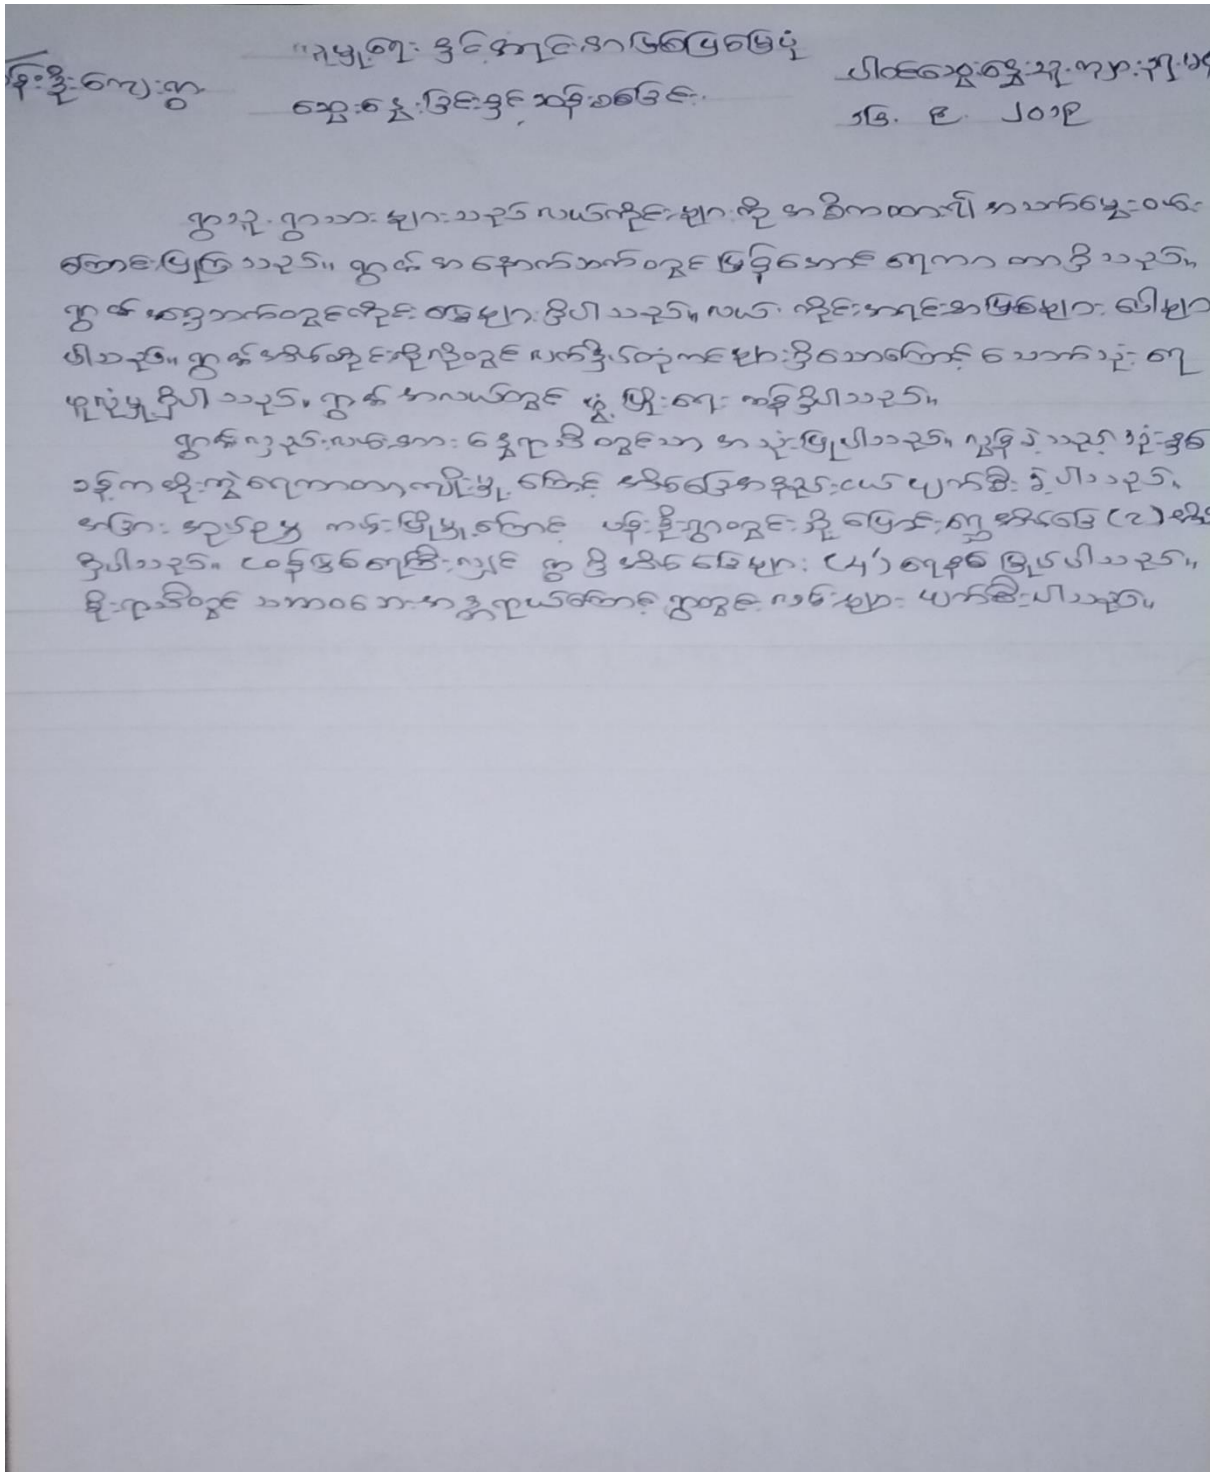 "လူမှုရေး နှင့် အရင်းအမြစ်ပြမြေပုံ
ပန်းဦးကျေးရွာ
ဆွေးနွေးခြင်းနှင့် ဆန်းစစ်ခြင်း
ပါဝင်ဆွေးနွေးသူ-ကျား-၃၊ မ
၁၆. ၉. ၂၀၁၉
ရွာသူ ရွာသားများသည် လယ်ကိုင်းများကို အဓိကထား၍ အသက်မွေးဝမ်း
ကြောင်းပြုကြသည်။ ရွာ၏ အနောက်ဘက်တွင် မြစ်ခုံအောင် ရေကာတာရှိသည်။
ရွာ၏ အရှေ့ဘက်တွင်ကိုင်းမြေများရှိပါသည်။ လယ် ကိုင်းအရင်းအမြစ်များ ပေါများ
ပါသည်။ ရွာ၏ အိမ်တိုင်းစိုလိုတွင် လက်နှိပ်တုံကင်များရှိသောကြောင့် သောက်သုံးရေ
ဖူလုံမှု ရှိပါသည်။ ရွာ၏ အလယ်တွင် ဖွံ့ဖြိုးရေး ကန်ရှိပါသည်။
ရွာ၏လှည်းလမ်းအား နွေရာသီတွင်သာ အသုံးပြုပါသည်။ လွန်ခဲ့သည့် သုံးနှစ်
ခန့်က ဆိုးကွဲရေကာတာကျိုးမှုကြောင့် အိမ်ခြေအနည်းငယ် ပျက်စီးခဲ့ပါသည်။
အခြား ကမ်းပြိုမှုကြောင့် ပန်းဦးရွာတွင်းသို့ ပြောင်းရွှေ့အိမ်ခြေ (၃) အိမ်
ရှိပါသည်။ ငဝန်မြစ်ရေကြီးလျှင် ရွာရှိ အိမ်ခြေများ (၄') ရေနစ်မြုပ်ပါသည်။
မိုးရာသီတွင် သဘာဝဘေးအန္တရာယ်ကြောင့် ရွာတွင်း လမ်းများ ပျက်စီးပါသည်။